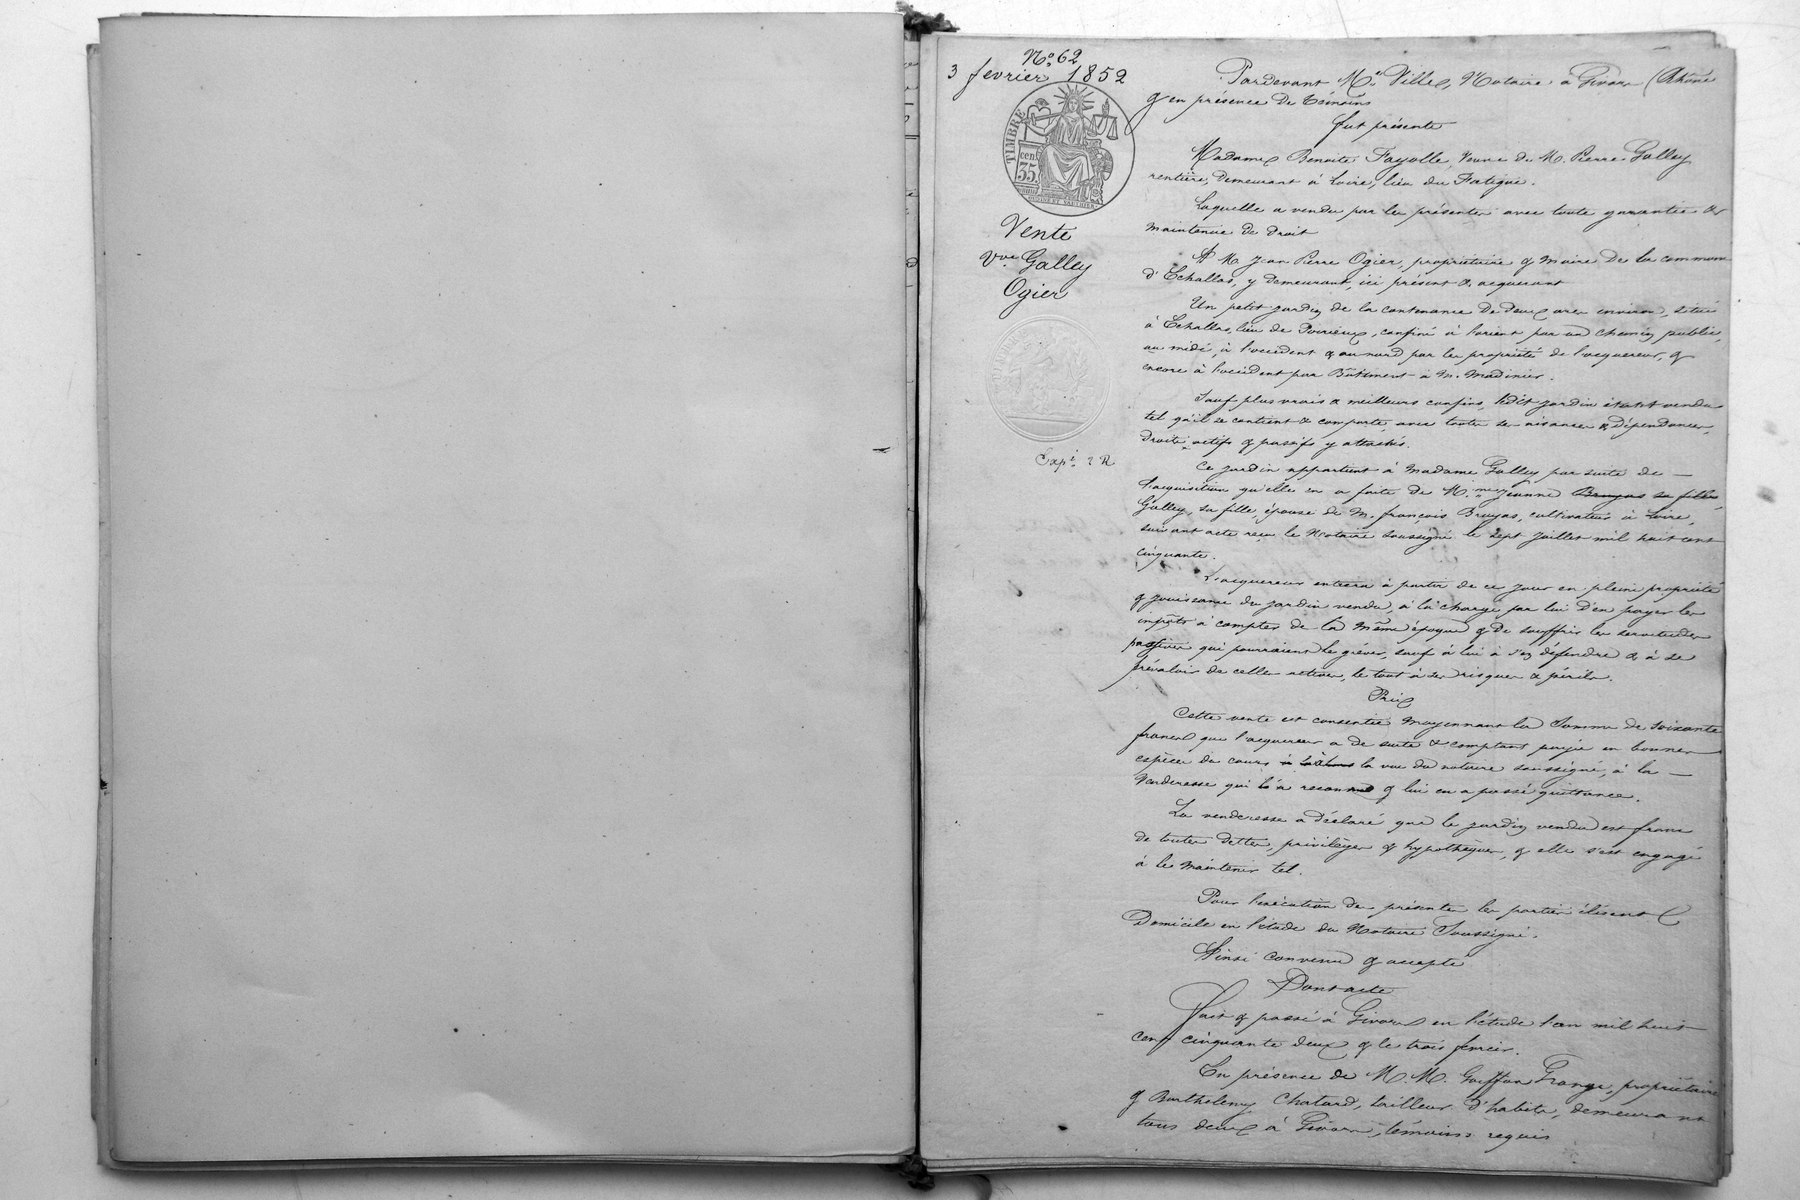 No. 62
3 fevrier 1852
TIMBRE
cen.
35.
Vente
Vve Galley
Ogier
Expi. 2 R
Pardevant Me. Ville, Notaire à Givors (Rhône
& en présence de témoins
fut présente
Madame Benoite Fayolle, Veuve de M. Pierre Galley
rentière, demeurant à Loire, lieu du Fatigué.
Laquelle a vendu par les présentes avec toute garantie &
maintenue de droit
A M. Jean Pierre Ogier, propriétaire & Maire de la commune
d'Echallas, y demeurant, ici présent & acquerant
Un petit jardin de la contenance de deux ares environ, situé
à Echallas, lieu de Poirieux, confiné à l'orient par un chemin public,
au midi, à l'occident & au nord par les propriétés de l'acquereur, &
encore à l'occident par Bâtiment à M. Madinier.
Sauf plus vrais & meilleurs confins, ledit jardin étant vendu
tel qu'il se contient & comporte, avec toutes ses aisances & dépendances,
droits actifs & passifs y attachés.
Ce jardin appartient à Madame Galley par suite de
l'acquisition qu'elle en a faite de M.me Jeanne Bruyas sa fille,
Galley, sa fille, épouse de M. françois Bruyas, cultivateur à Loire,
suivant acte reçu le Notaire soussigné le sept juillet mil huit cent
cinquante.
L'acquereur entrera à partir de ce jour en pleine propriété
& jouissance du jardin vendu, à la charge par lui d'en payer les
impôts à compter de la même époque & de souffrir les servitudes
passives qui pourraient le gréver, sauf à lui à s'en défendre & à se
prévaloir de celles actives, le tout à ses risques & périls.
Prix
Cette vente est consentie moyennant la Somme de soixante
francs que l'acquereur a de suite & comptant payée en bonnes
espèces du cours à la vue du notaire soussigné, à la
Venderesse qui l'a reconnu & lui en a passé quittance.
La venderesse a déclaré que le jardin vendu est franc
de toutes dettes, privilèges & hypothèques, & elle s'est engagé
à les maintenir tel.
Pour l'exécution des présentes les parties élisent
Domicile en l'étude du Notaire Soussigné.
Ainsi convenu & accepté
Dont acte
Fait & passé à Givors en l'étude l'an mil huit
cent cinquante deux & le trois fevrier.
En présence de M.M. Goiffon Grange, propriétaire
& Barthelemy Chatard, tailleur d'habits, demeurant
tous deux à Givors, témoins requis